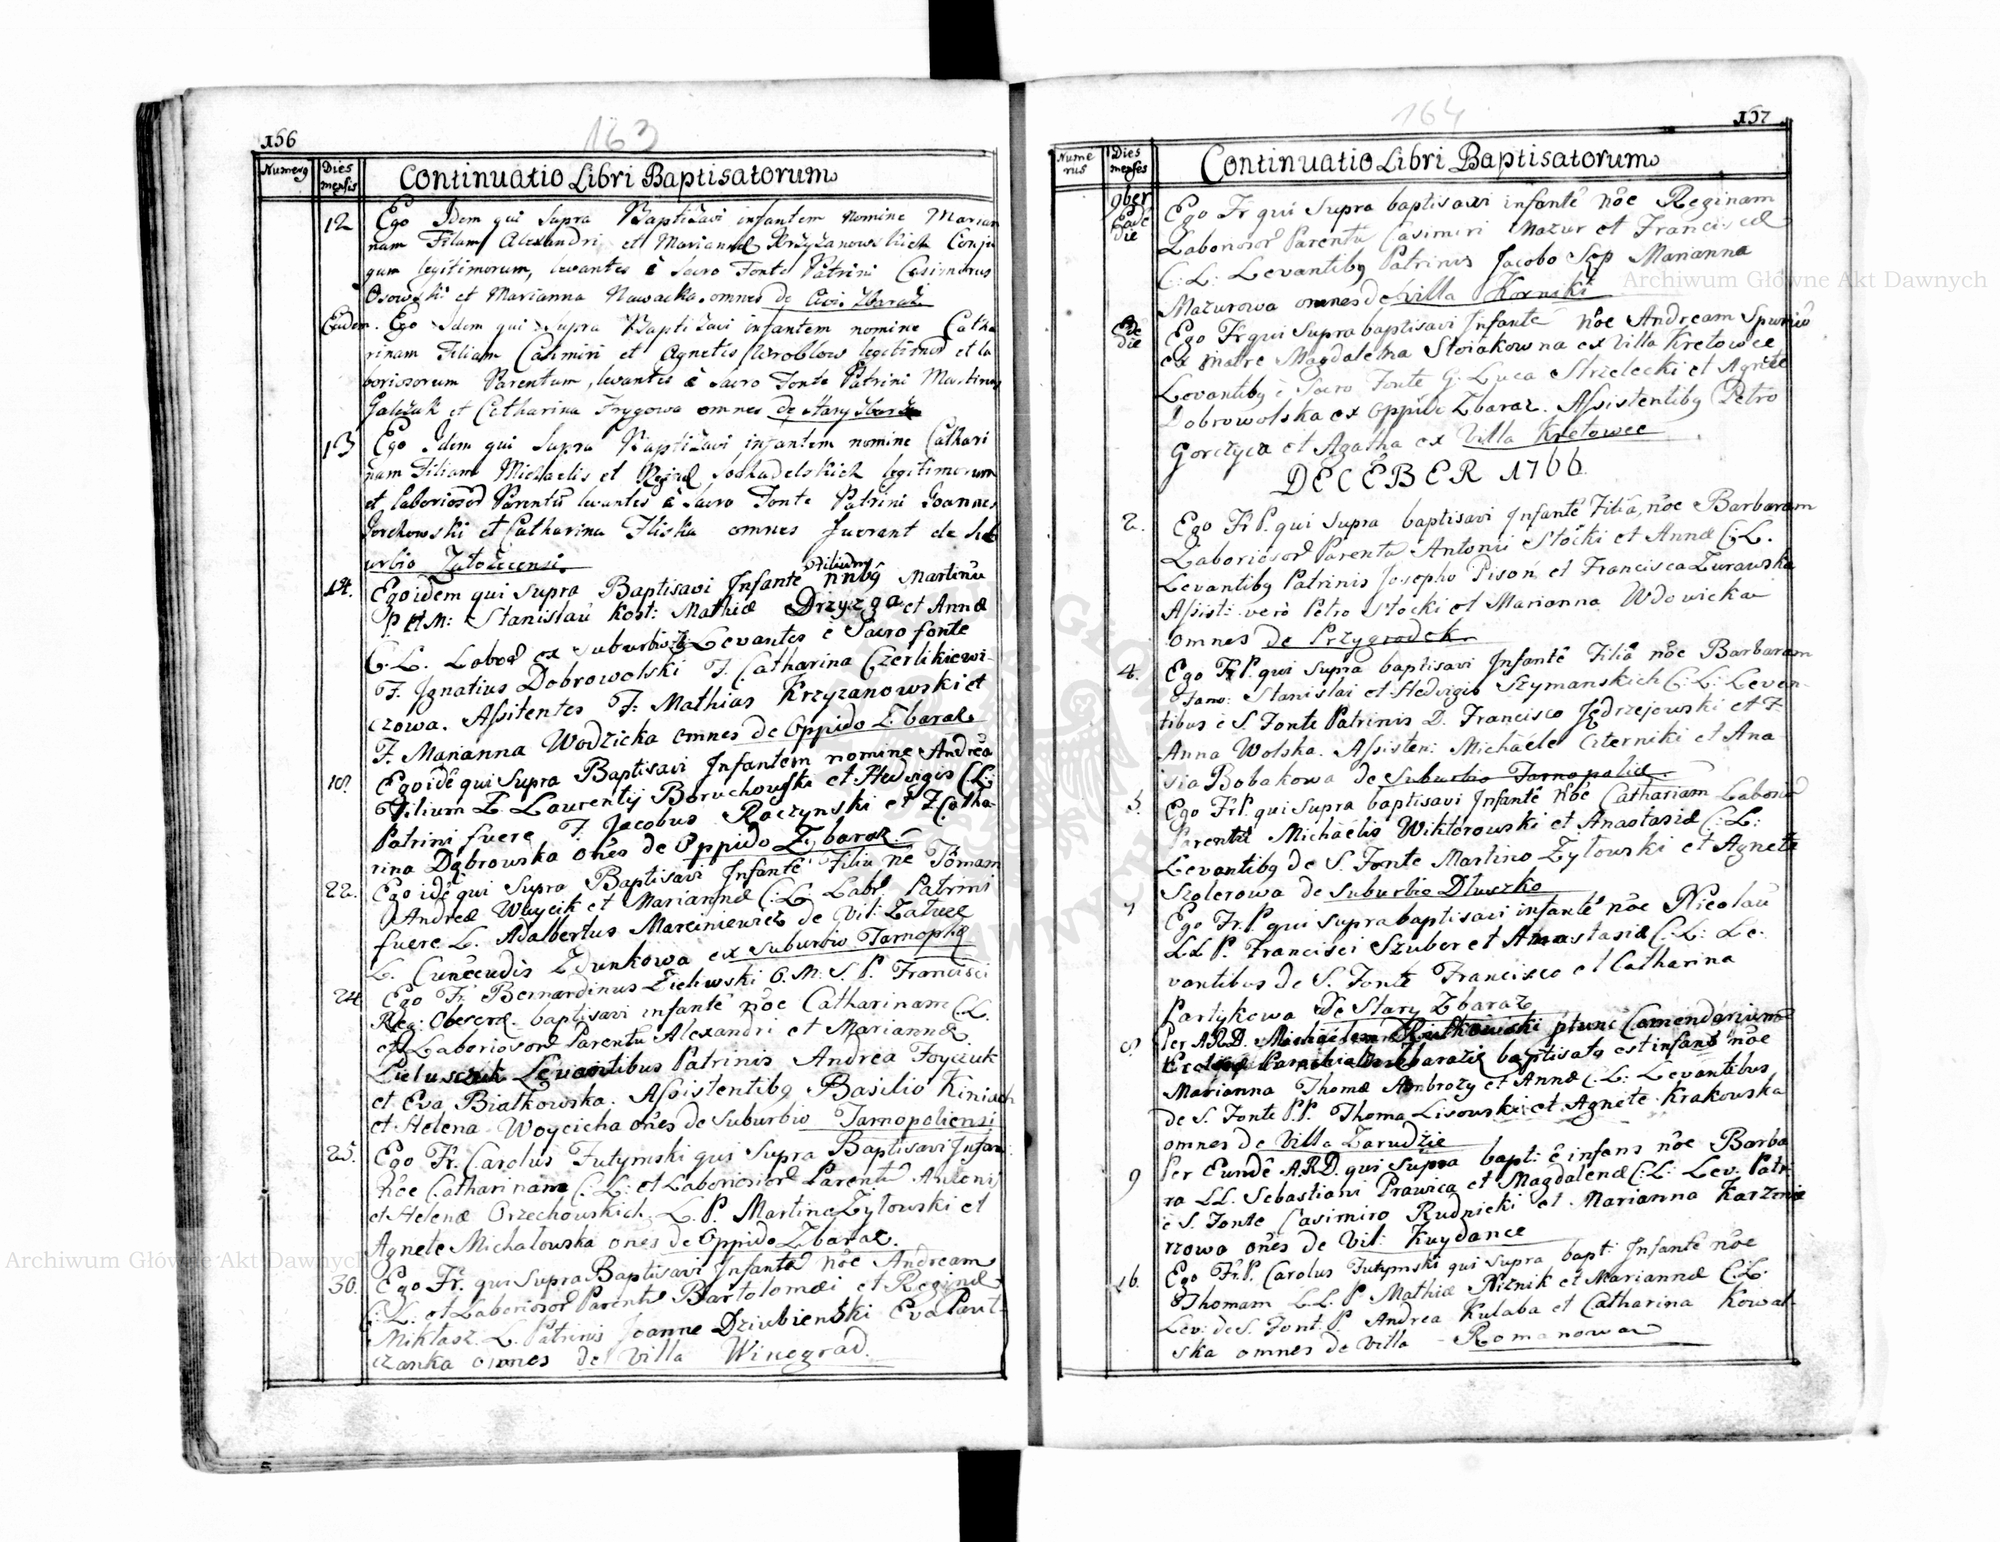 156
163
Numerg Dies mensis Continuatio Libri Baptisatorum
12 Ego Idem qui supra Baptizavi infantem nomine Marian
nam Filiam Alexandri et Mariannæ Krzyzanowskich Conju
gum legitimorum, levantes è Sacro Fonte Patrini Casimirus
Osowski et Marianna Nawacka omnes de Civi: Zbaraż
Eadem. Ego Idem qui Supra Baptizavi infantem nomine Catha
rinam Filiam Casimiri et Agnetis Wroblow legitimor et la
boriosorum Parentum, levantes è Sacro Fonte Patrini Martinus
Galżuk et Catharina Frygowa omnes de Stary Zbaraż
13 Ego Idem qui Supra Baptizavi infantem nomine Cathari
nam Filiam Michaelis et Reginæ Soskadelskich legitimorum
et laboriosor Parentu levantes è Sacro Fonte Patrini Joannes
Jorchowski et Catharina Iliska omnes fuerant de Sub
urbio Załozcensi.
14. Ego idem qui supra Baptisavi Infante Filium nnbg Martinu
P. et M: Stanislau Kost: Mathiæ Drzyzga et Annæ
C. L. Labor ex suburbio Levantes è Sacro fonte
F. Ignatius Dobrowolski F. Catharina Czerlikiewi-
czowa. Assitentes F: Mathias Krzyzanowski et
F. Marianna Wodzicka omnes de Oppido Zbaraz
18. Ego idê qui Supra Baptisavi Infantem nomine Andrea
Filium L Laurentij Boruchowska et Hedvigis C:L:
Patrini fuere F: Jacobus Raczynski et F Catha-
rina Dąbrowska ones de Oppido Zbaraz
22. Ego idê qui Supra Baptisavi Infantê Filiu nê Tomam
Andreæ Woycik et Mariannæ C: L: Labr. Patrini
fuere L. Adalbertus Marciniewicz de Vil: Zaluze
L. Cuncudis Zdunkowa ex suburbio Tarnopliæ
24 Ego Fr. Bernardinus Zieliwski O. M: S. P. Francisci
Reg: Obseræ. baptisavi infantê nôe Catharinam C.L.
et Laboriosor Parentu Alexandri et Mariannæ
Lieluszuk Levantibus Patrinis Andrea Foyciuk
et Eva Białkowska. Assistentibg Basilio Kiniach
et Helena Woycicha ones de Suburbio Tarnopoliensi
25. Ego Fr. Carolus Futymski qui Supra Baptisavi Infan:
nôe Catharinam C: L: et Laboriosior Parentu Antonij
et Helenæ Orzechowskich. L. P. Martino Zytowski et
Agnete Michalowska ones de Oppido Zbaraz.
30. Ego Fr. qui Supra Baptisavi Infantê nôe Andream
C: L. et Laboriosor Parentu Bartolomæi et Reginæ
Miklasz. L. Patrinis Joanne Dziubienski Eva Pawt-
czanka omnes de Villa Winegrad.
164
157
Numerus Dies menses Continuatio Libri Baptisatorum
9ber
Eadê die Ego Fr qui Supra baptisavi infantê nôe Reginam
Laboriosor Parentu Casimiri Mazur et Franciscæ
C: L: Levantibg Patrinis Jacobo Sep Marianna
Mazurowa omnes de Villa Kornski
Eadê die Ego Fr qui Supra baptisavi Infantê nôe Andream Spuriû
ex matre Magdalena Stoiakowna ex Villa Kretowce
Levantibg è Sacro Fonte G. Luca Strzelecki et Agnete
Dobrowolska ex Oppido Zbaraz. Assistentibg Petro
Gorczyca et Agatha ex Villa Kretowce
DECEBER 1766
2. Ego Fr P. qui Supra baptisavi Infantê Filiâ, nôe Barbaram
Laboriosor Parentu Antonii Stocki et Annæ C: L.
Levantibg Patrinis Josepho Pison et Francisca Zurawska
Assist: verò Petro Stocki et Marianna Wdowicka
omnes de Przygrodek
4. Ego Fr P. qui Supra baptisavi Infantê Filiâ nôe Barbaram
Fam: Stanislai et Hedvigis Szymanskich C: L: Levan-
tibus è S. Fonte Patrinis D. Francisco Jędrzejowski et F
Anna Wolska. Assisten: Michaele Citerniki et Ana
sia Bobakowa de Suburbio Tarnopoliæ
5. Ego Fr P. qui Supra baptisavi Infantê Nôe Cathariam Labori
Parentu Michaelis Wiktorowski et Anastasiæ C: L:
Levantibg de S. Fonte Martino Zytowski et Agnete
Szolerowa de Suburbio Dluszko
7 Ego Fr. P. qui Supra baptisavi infantê nôe Nicolau
LL P. Francisci Szuber et Anastasiæ C: L: Le-
vantibus de S. Fonte Francisco et Catharina
Partykowa De Stary Zbaraz
8 Per A.R.D. Michaelem Rutkowski ptunc Comendarium
Ecclesiæ Parochialis Zbarazie baptisatg est infans nôe
Marianna Thomæ Ambrozy et Annæ C: L: Levantibus
de S. Fonte P.P. Thoma Lisowski et Agnete Krakowska
omnes de Villa Zarudzie
9 Per Eundê A.R.D. qui Supra bapt: ê infans nôe Barba
ra LL. Sebastiani Prawica et Magdalenæ C: L: Lev: Patr
è S. Fonte Casimiro Rudnicki et Marianna Karznie
rzowa ones de Vil: Kuydance
16. Ego Fr. P. Carolus Futymski qui supra bapt: Infantê nôe
Thomam LL P. Mathiæ Niznik et Mariannæ C: L:
Lev: de S. Font: P. Andrea Kulaba et Catharina Kowal-
ska omnes de Villa Romanowa
Archiwum Główne Akt Dawnych
Archiwum Główne Akt Dawnych